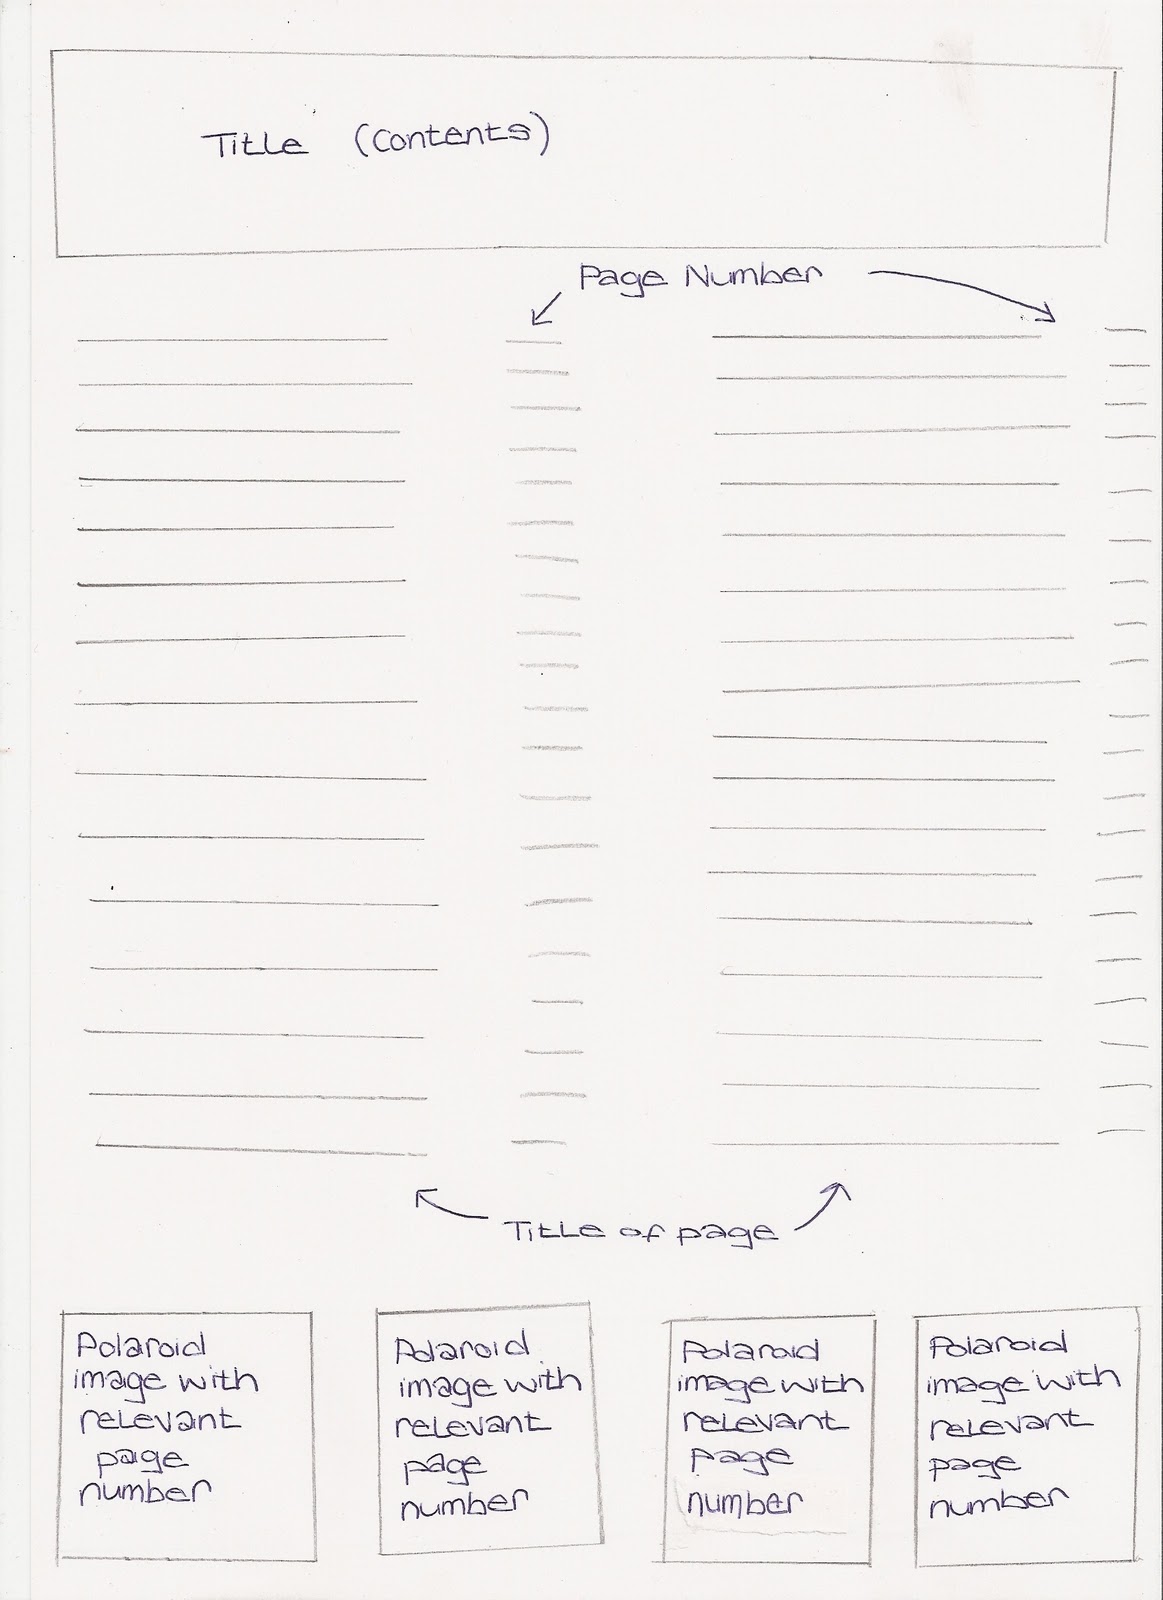 Title (Contents)
Page Number
Title of page
Polaroid
image with
relevant
page
number
Polaroid
image with
relevant
page
number
Polaroid
image with
relevant
page
number
Polaroid
image with
relevant
page
number